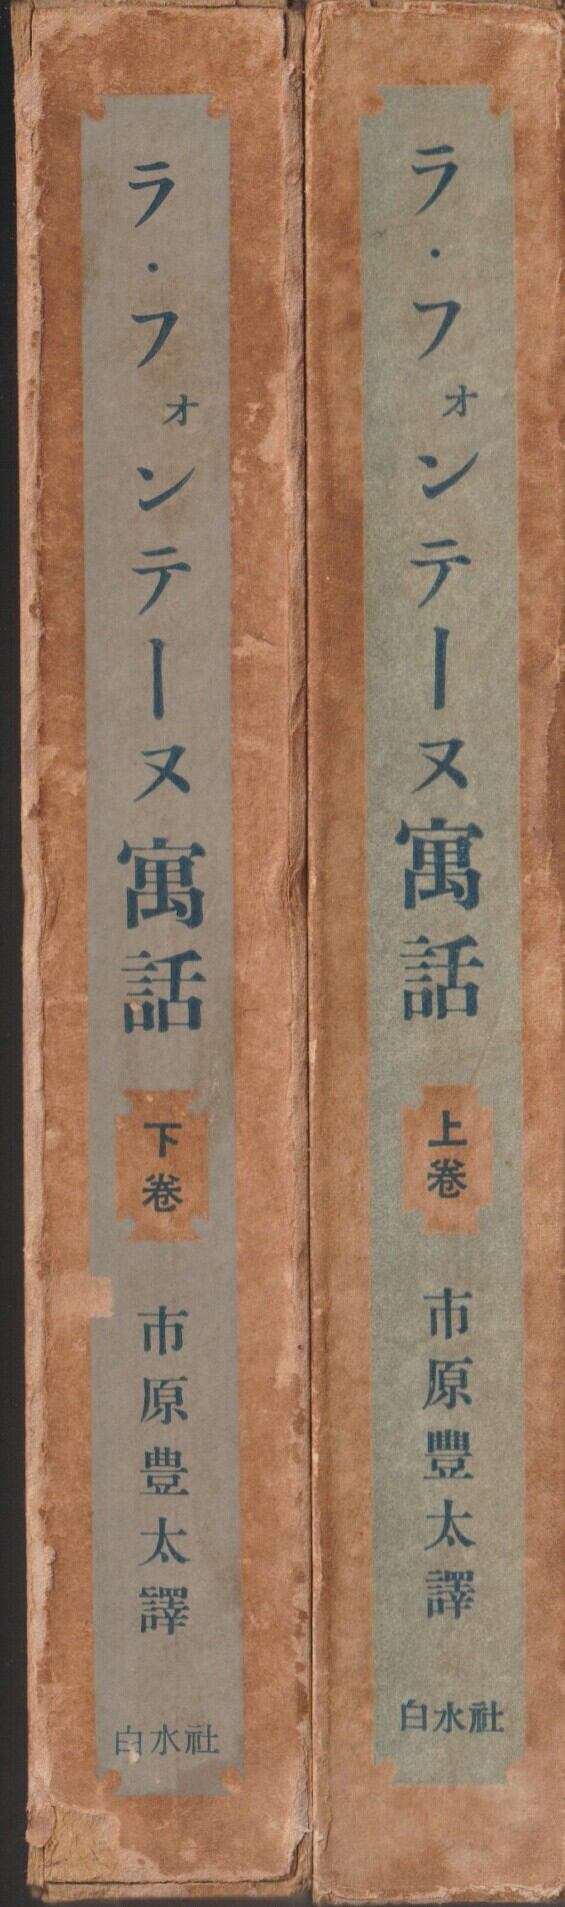 ラ・フォンテーヌ寓話
上卷
市原豐太譯
白水社
ラ・フォンテーヌ寓話
下卷
市原豊太譯
白水社